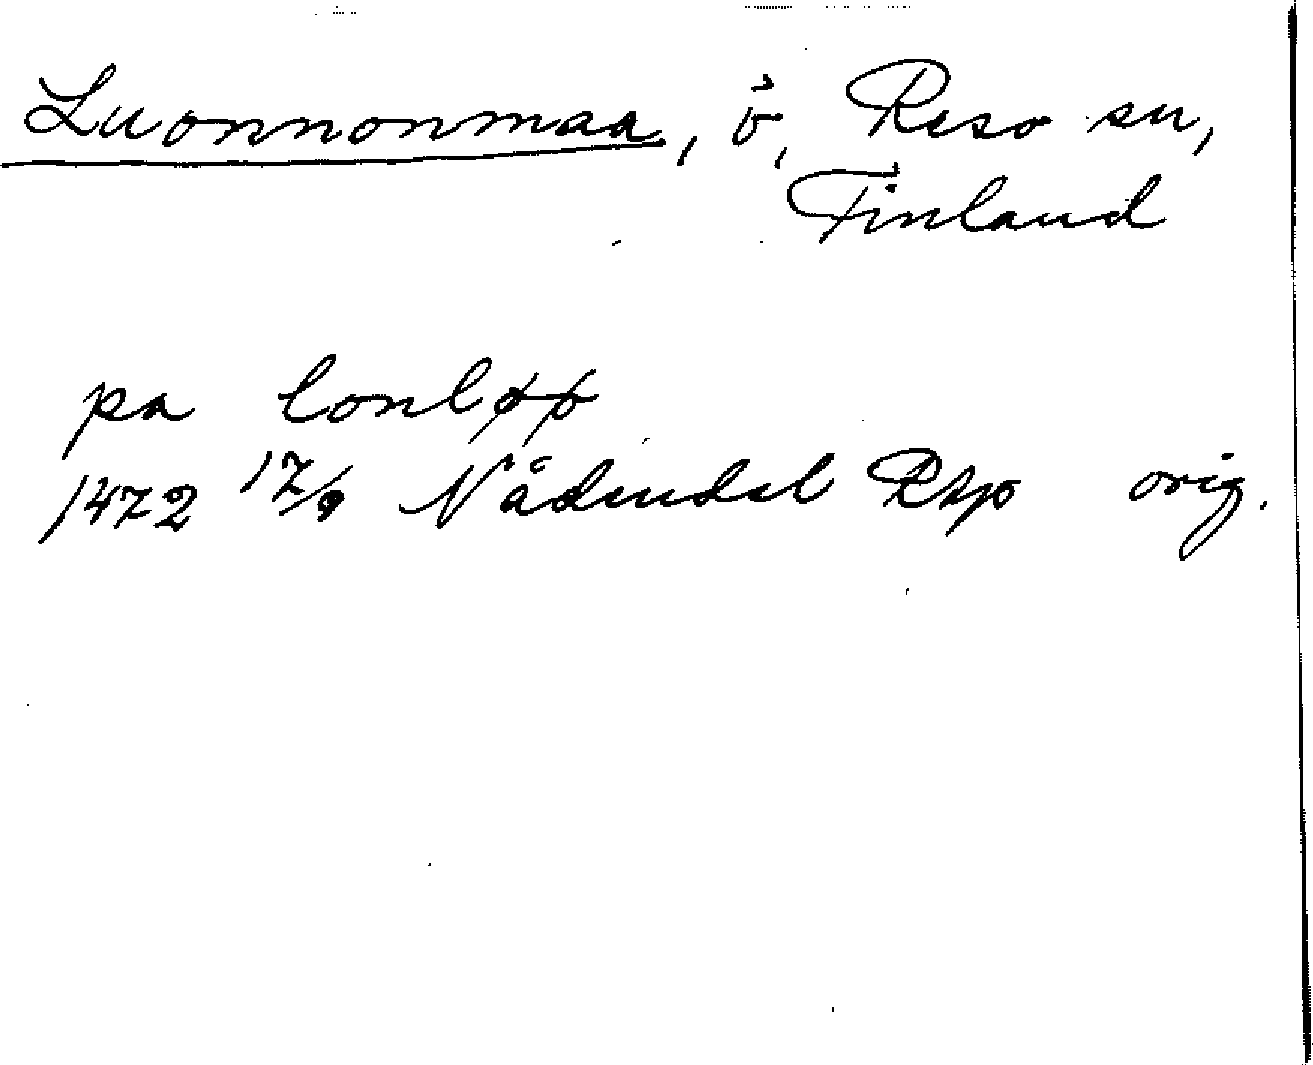 Luonnonmaa, ö, Reso sn,
Finland
pa lonløø
1472 17/9 Nådendal Rkp orig.